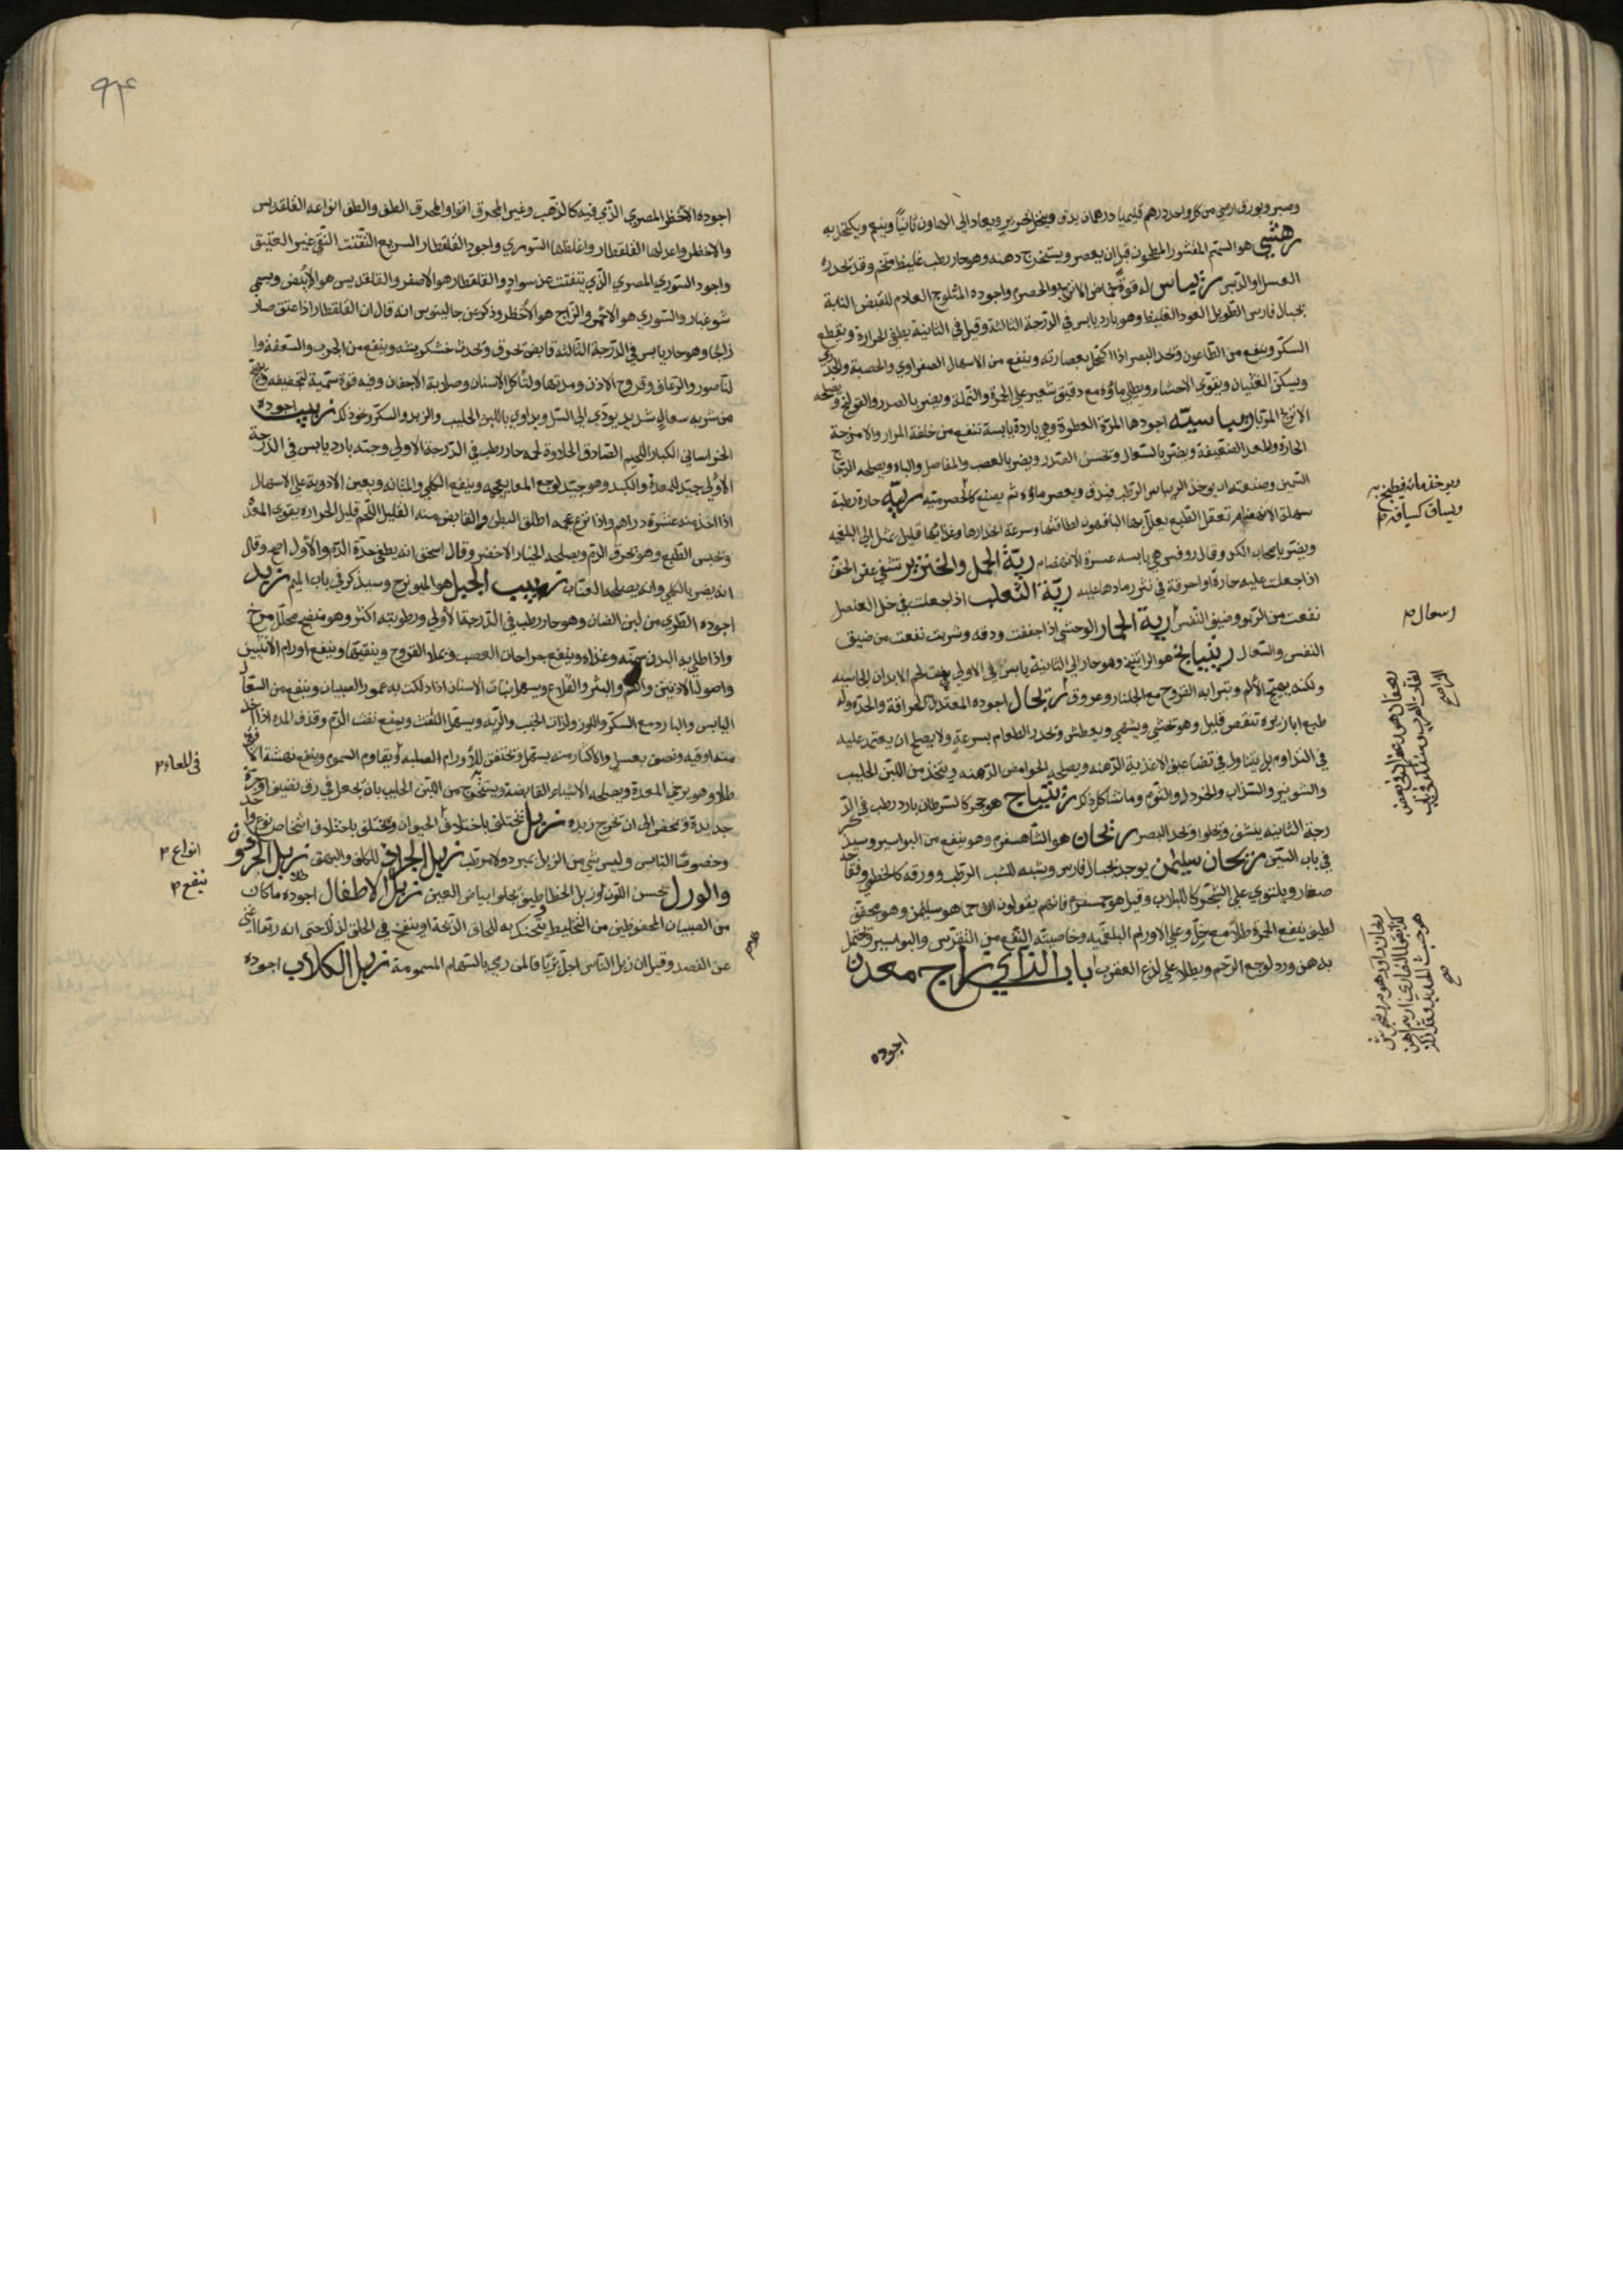 وصبر وبورق ارمني من كل واحد درهم قليميا درهمان يدق وينخل بحرير ويعاد الى الهاون ثانياً وينعم ويكتحل به
رهشي هو السمسم المقشور المطحون قبل ان يعصر ويستخرج دهنه وهو حار رطب غليظ متخم وقد تحدره
العسل او الدبس ريباس له قوة حماض الاترج والحصرم واجوده المثلوج العادم للقبض النابة
بجبال فارس الطويل العود الغليظ وهو بارد يابس في الدرجة الثالثة وقيل في الثانية يطفي الحرارة ويقطع
السكر وينفع من الطاعون وتحد البصر اذا اكتحل بعصارته وينفع من الاسهال الصفراوي والحصبة والجدري
ويسكن الغثيان ويقوي الاحشاء ويطلي ماؤه مع دقيق شعير على الحمرة والنملة ويضر بالصدر والقولنج ويصلحه
الاترج المربا ريباسيته اجودها المزة العطرة وهي باردة يابسة تنفع من خلفة المرار والامزجة
الحارة والمعد الضعيفة ويضر بالسعال وتخشن الصدر ويضر بالعصب والمفاصل والباه ويصلحه الدجاج
السمين وصنعته ان يوخذ الريباس الرطب فيدق ويعصر ماؤه ثم يصنع كالحصرميه ريه حارة رطبة
سهلة الانهضام تعقل الطبع يعلل بها الناقهون لطافتها وسرعة انحدارها وغذائها قليل يميل الى البلغميه
ويضر باصحاب الكد وقال روفس هي يابسه عسرة الانهضام رية الحمل والخنزير تشفي عقر الخف
اذا جعلت عليه حارة او احرقة في نثر رمادها عليه رية الثعلب اذا جعلت في خل العنصل
نفعت من الربو وضيق النفس رية الحمار الوحشي اذا جففت ودقه وشربت نفعت من ضيق
النفس والسعال رينيانج هو الراتينج وهو حار الى الثانية يابس في الاولى ينبت لحم الابدان الجاسيه
ولكنه يهيج الألم وتبرا به القروح مع الجلنار وعروق ريحال اجوده المعتدل الحرافة والحدّه وله
طبع ابازيره تنقص قليل وهو تحشي ويشهي ويعطش وتحدر الطعام بسرعةٍ ولا يصلح ان يعتمد عليه
في التداوم بل يتناول في تضاعيف الاغذية الدهنه ويصلحه الحوامض الدهنه ويتخذ من اللبن الحليب
والشونيز والسذاب والخردل والثوم وما شاكل ذكر ريتياج هو حجر كالسرطان بارد رطب في الد
رجة الثانيه ينشف وتجلوا وتحد البصر ريحان هو الشاهسفرم وهو ينفع من البواسير وسيذكر
في باب الشين ريحان سليمن يوجد بجبال فارس ويشبه للشب الرطب وورقه كالخطمي وفقاحه
صغار ويلتوي على الشجر كاللبلاب وقيل هو جمسفرم فانهم يقولون ان جما هو سليمن وهو مجفف
لطيف ينفع الحمرة طلاً مع خلّ وعلى الاورام البلغميه وخاصيته النفع من النقرس والبواسير وتحتمل
بدهن ورد لوجع الرحم ويطلا على لدغ العقرب باب الزاي زاج معدن
اجوده
اسهال
اجوده الاخظر المصري الذي فيه كالذهب وغير المحرق اقوا والمحرق الطف والطف انواعه القلقديس
والاخظر واعدلها القلقطار واغلظها السوري واجود القلقطار السريع التفتت النقي غير العتيق
واجود السوري المصري الذي يتفتت عن سوادٍ والقلقطار هو الاصفر والقلقديس هو الأبيض ويسمى
شوغبار والسوري هو الاحمر والزاج هو الأخظر وذكر عن جالينوس انه قال ان القلقطار اذا عتق صار
زاجا وهو حار يابس في الدرجة الثالثه قابض تحرق وتحدث خشكريشه وينفع من الجرب والسعفة وا
لناصور والرعاف وقروح الاذن ومدتها ولتاكل الاسنان وصلابة الاجفان وفيه قوة سمية لتجفيفه
من شربه سعال شديد يودي الى السل ويداوى باللبن الحليب والزبد والسكر ونحو ذلك زبيب اجوده
الخراساني الكبار اللحيم الصادق الحلاوة لحمه حار رطب في الدرجة الاولى وحبه بارد يابس في الدرجة
الأولى جيد للمعدة والكبد وهو جيد لوجع المعا بعجمه وينفع الكلى والمثانه ويعين الادوية على الاسهال
اذا اخذ منه عشرة دراهم واذا نزع عجمه اطلق البطن والقابض منه القليل اللحم قليل الحراره يقوي المعده
وتحبس الطبع وهو تحرق الدم ويصلحه الخيار الاخضر وقال اسحق انه يطفي حدة الدم والأول اصح وقال
انه يضر بالكلى وانه يصلحه العناب زبيب الجبل هو الميويزج وسيذكر في باب الميم زبد
اجوده الطري من لبن الضان وهو حار رطب في الدرجة الأولى ورطوبته اكثر وهو منضج محلل مرخ
واذا طلي به البدن سمنه وغذاه وينفع جراحات العصب وتملا القروح وينقيها وينفع اورام الانثيين
واصول الاذنين والفم والبثر والقلاع ويسهل نبات الاسنان اذا دلكت به عمور الصبيان وينفع من السعال
اليابس والبارد مع السكر واللوز ولذات الجنب والرئه ويسهل النفث وينفع نفث الدم وقذف المده اذا اخذ
منه اوقيه ونصف بعسل والاكثار منه يسهل وتحتقن للأورام الصلبه ويقاوم السموم وينفع نهشة الافعى
طلا وهو يرخي المعدة ويصلحه الاشياء القابضة ويستخرج من اللبن الحليب بان تجعل في زق نضيف او جرة
جديدة وتمخض الى ان تخرج زبده زبل تختلف باختلاف الحيوان وتختلف باختلاف اشخاص نوع واحد
وخصوصا الناس وليس شي من الزبل بمبرد ولا مرطب زبل الجراد للكلف والبهق زبل الحرذون
والورل تحسن اللون وزبل الخطاطيف تجلوا بياض العين زبل الاطفال اجوده ما كان
من الصبيان المحفوظين من التخليط تحنك به للخناق الذبحة او ينفخ في الحلق لذلك حتى انه ربما اغنى
عن الفصد وقيل ان زبل الناس اجل ترياقا لمن رمي بالسهام المسمومة زبل الكلاب اجوده
في المعاء
انواع
ينفع